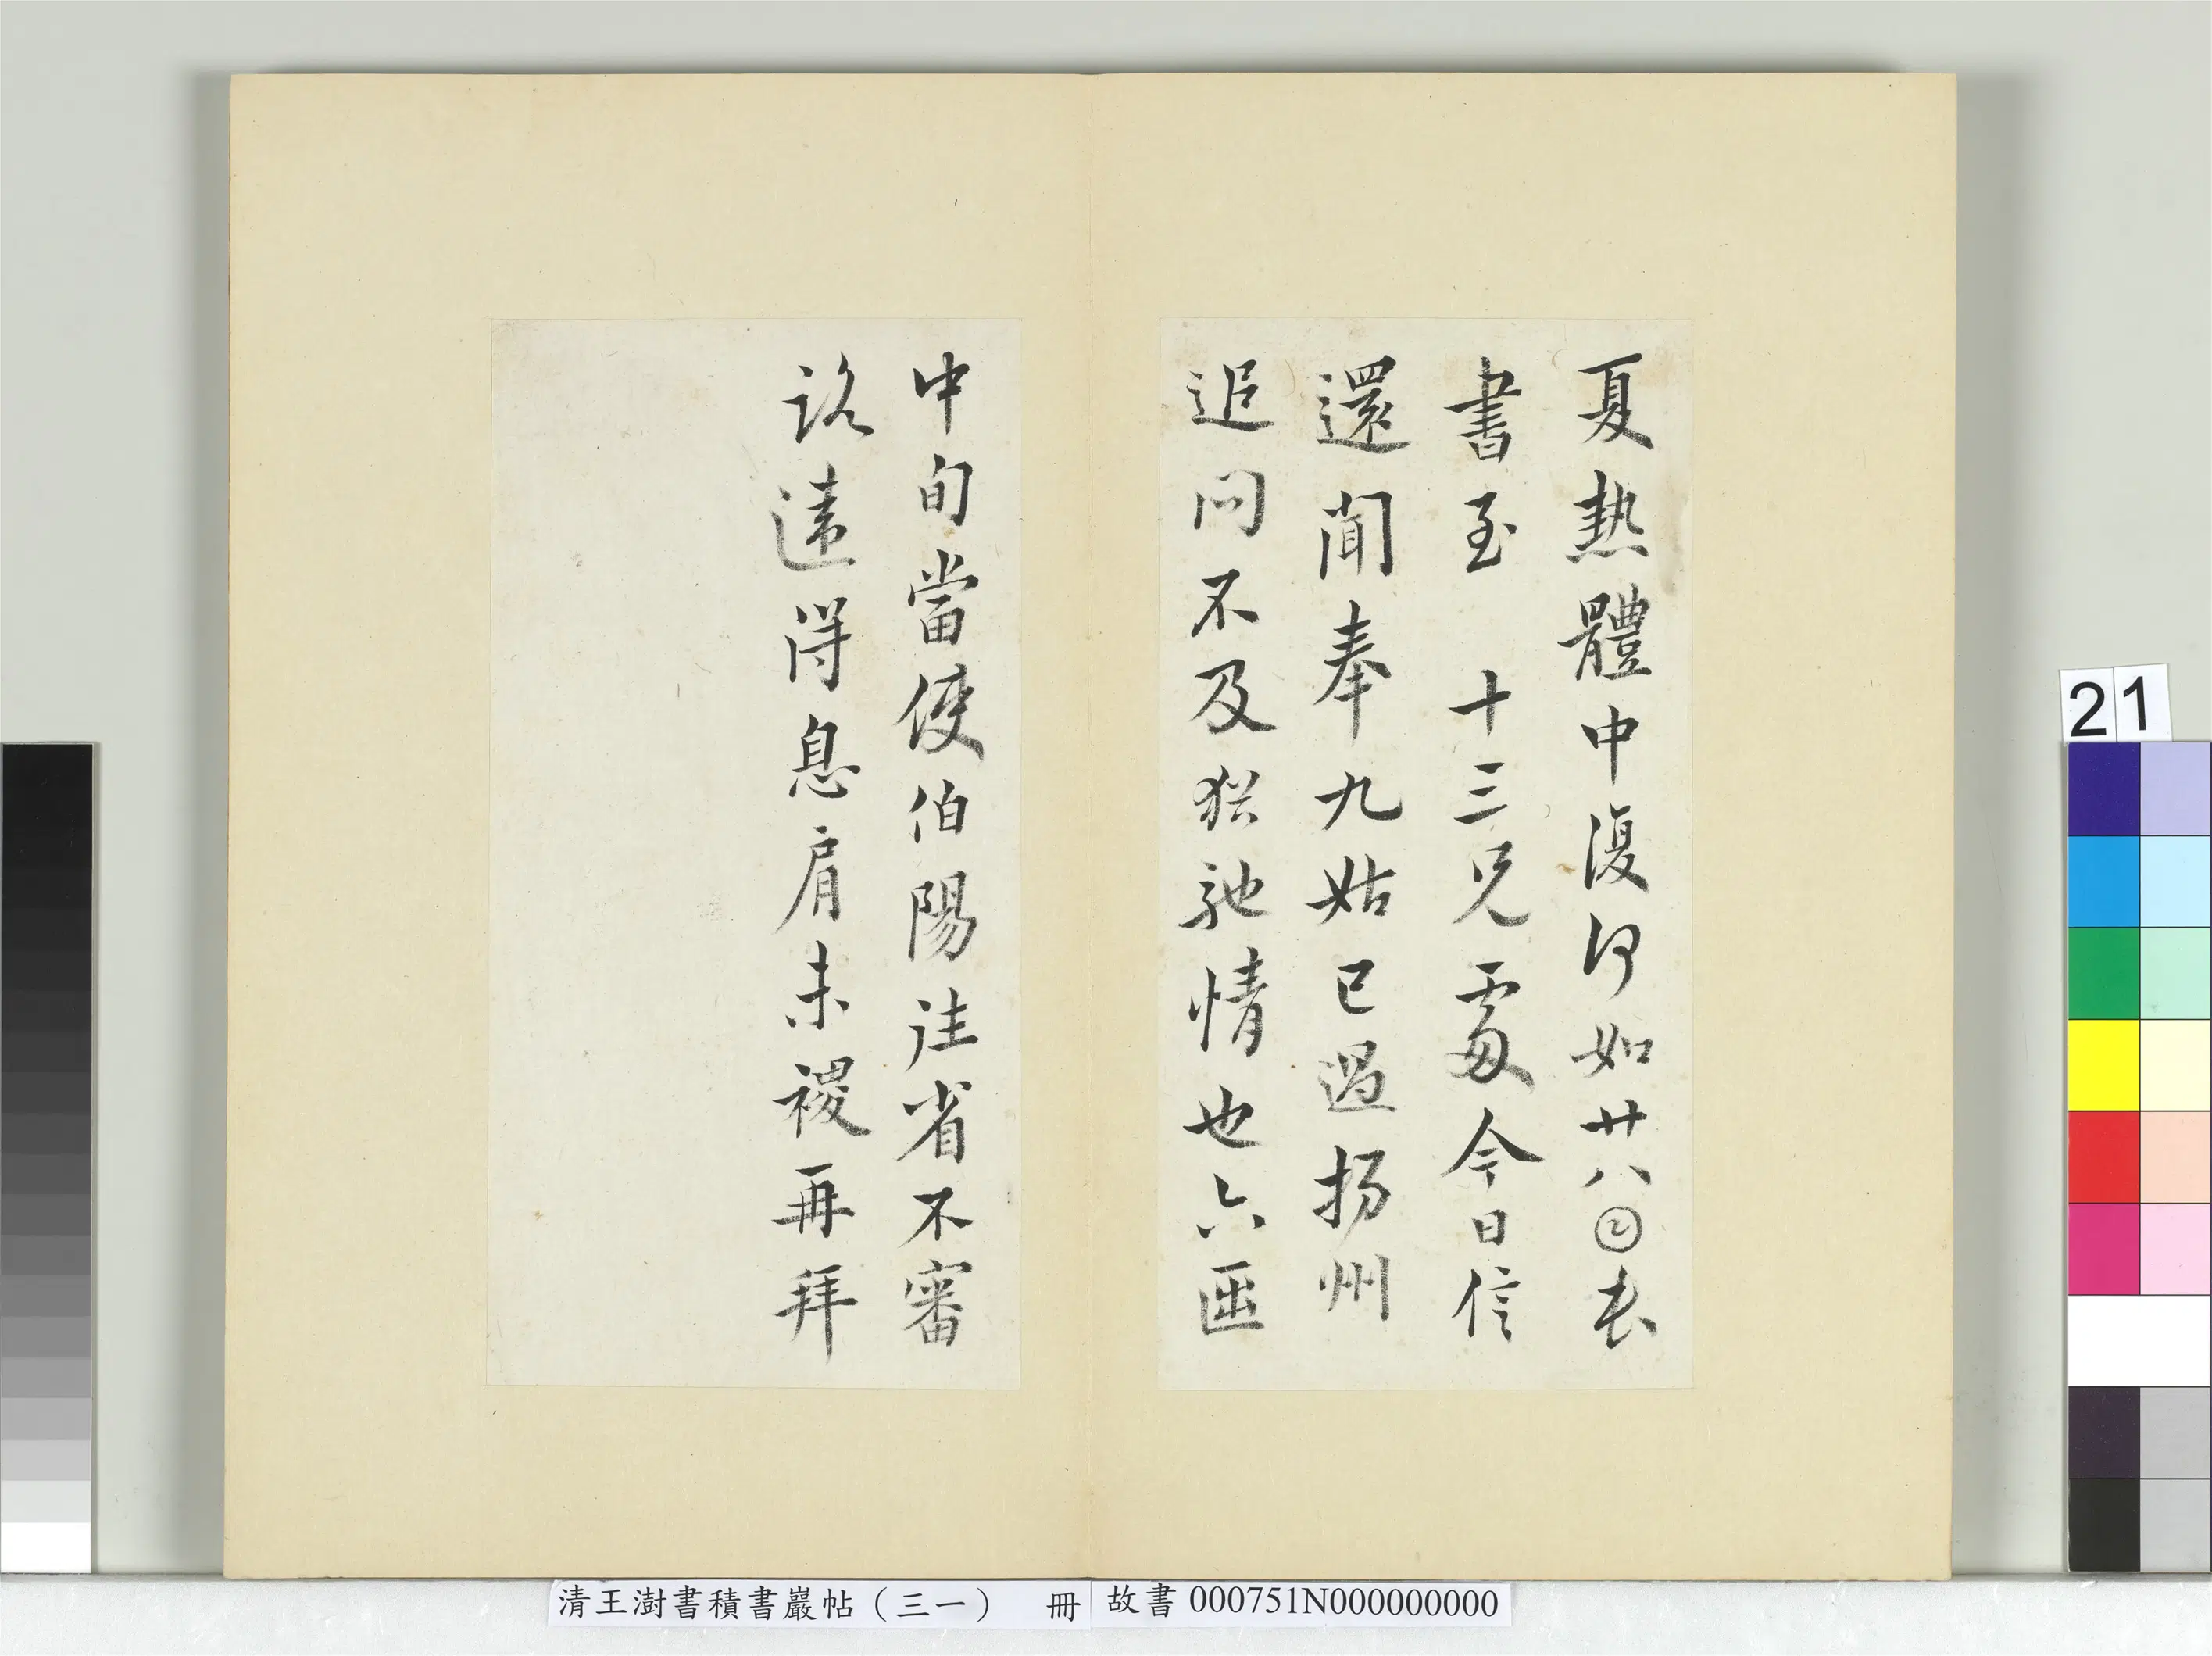 夏熱體中復何如廿八𡆠去
書至十三兄處今日信
還聞奉九姑已過揚州
追問不及猶馳情也六𠥱
中旬當使伯陽往省不審
違得息肩未稷再拜
21
清王澍書積書巖帖（三一） 冊
故書000751N000000000